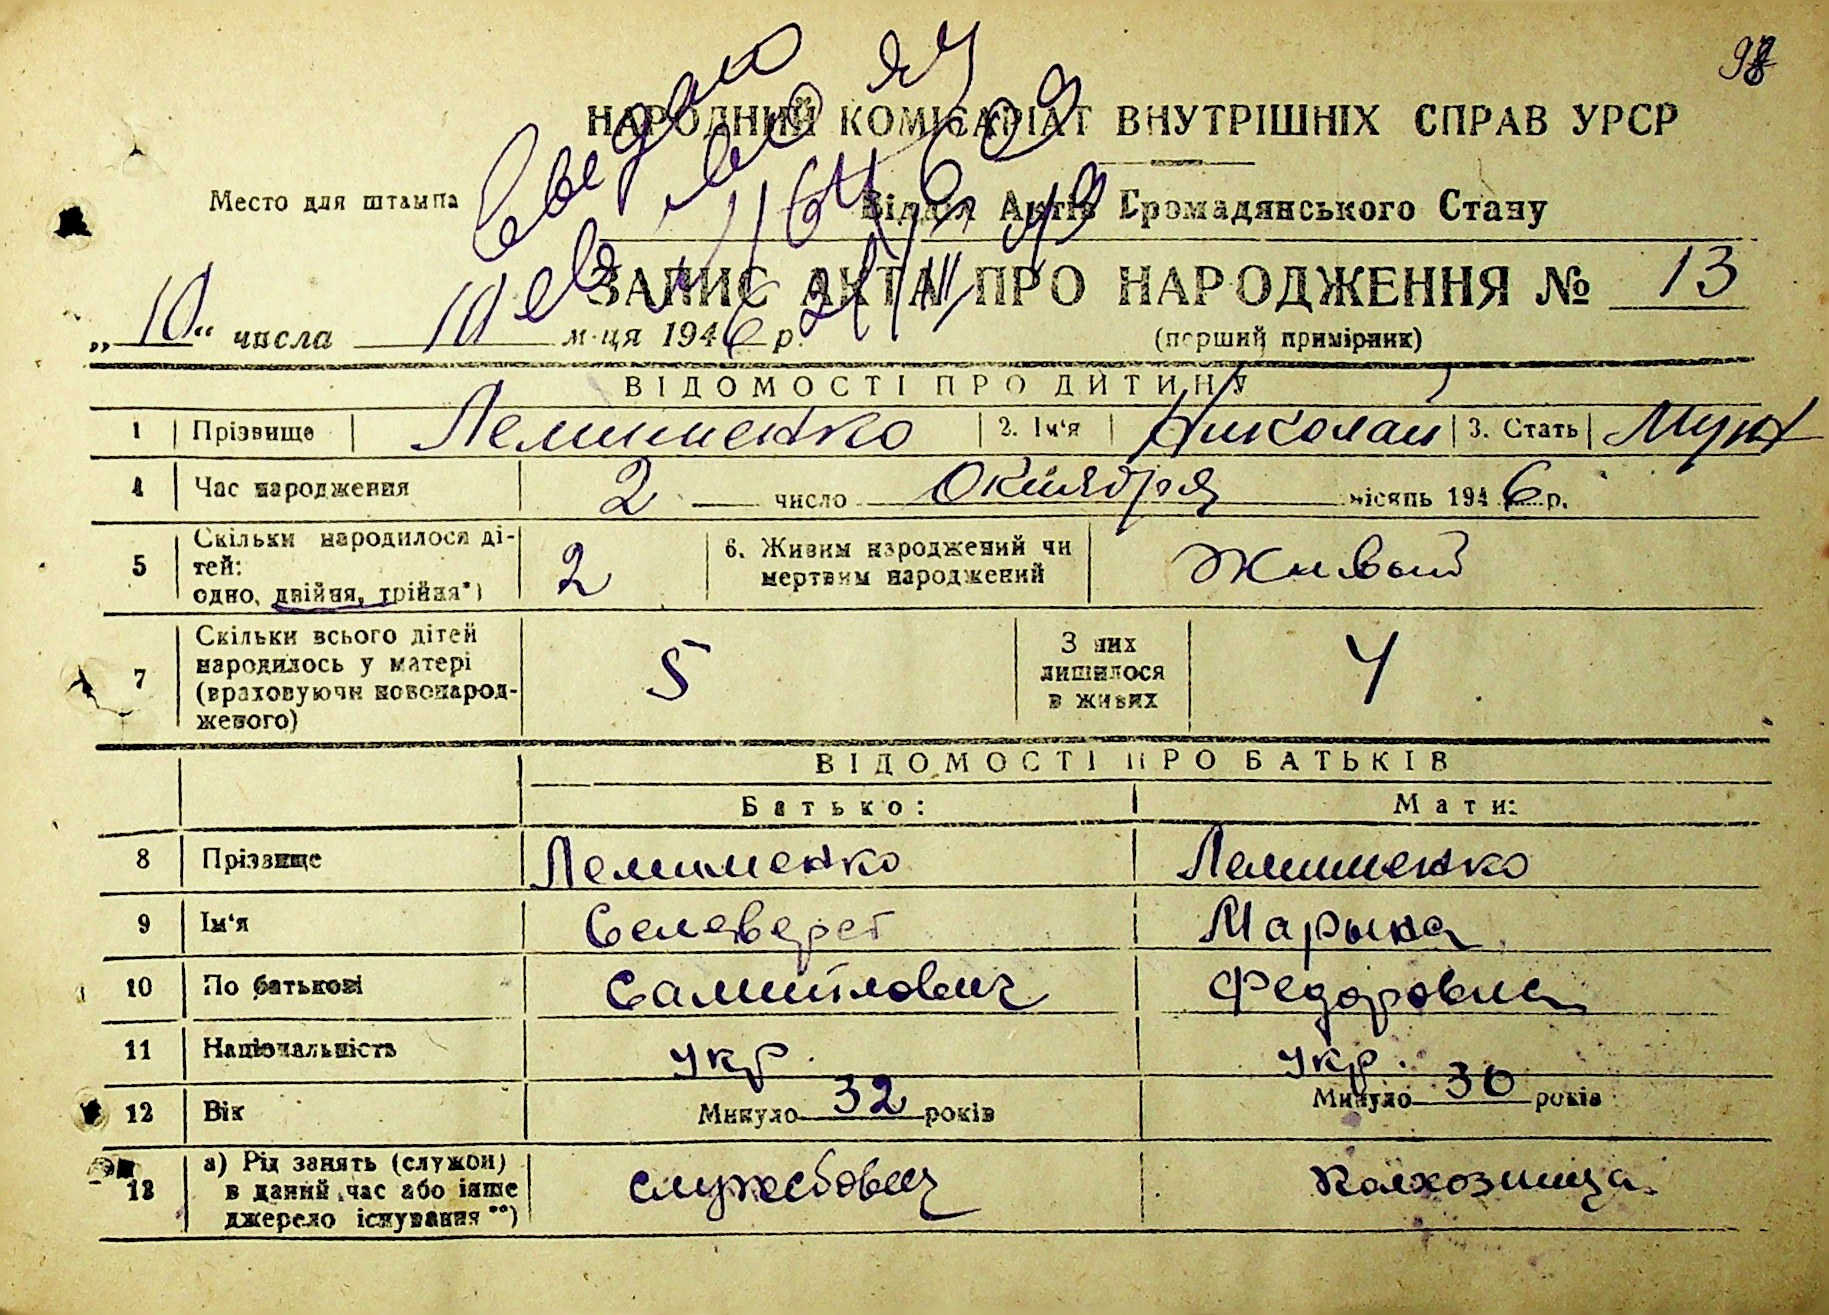 НАРОДНИЙ КОМІСАРІАТ ВНУТРІШНІХ СПРАВ УРСР
Место для штампа
Відділ Актів Громадянського Стану
ЗАПИС АКТА ПРО НАРОДЖЕННЯ № 13
„10“ числа 10 м-ця 1946 р.
(перший примірник)
ВІДОМОСТІ ПРО ДИТИНУ
1 Прізвище Лемишенко 2. Ім'я Николай 3. Стать Муж
4 Час народження 2 число Октября місяць 1946 р.
5 Скільки народилося ді-
тей:
одно, двійня, трійня*) 2
6. Живим народжений чи
мертвим народжений Живый
7 Скільки всього дітей
народилось у матері
(враховуючи новонарод-
женого) 5
З них
лишилося
в живих 4
ВІДОМОСТІ ПРО БАТЬКІВ
Батько: Мати:
8 Прізвище Лемишенко Лемишенко
9 Ім'я Марына
10 По батькові Самийлович Федоровна
11 Національність укр. укр.
12 Вік Минуло 32 років Минуло 30 років
13 а) Рід занять (служби)
в даний час або інше
джерело існування **) колхозница